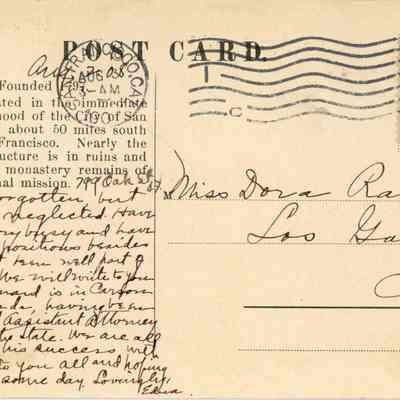 POST CARD.
SAN FRANCISCO, CAL.
AUG 3
AM
I
C
Aug 2-08
Founded
ated in the immediate
hood of the City of San
about 50 miles south
Francisco. Nearly the
ucture is in ruins and
monastery remains of
nal mission. 799 Oak St
rgotten but
neglected. Have
ry busy and have
positions besides
t been well part of
We will write to you
is in Carson
having been
Assistant Attorney
the State. We are all
his success will
to you all and hoping
some day. Lovingly,
Edna.
Miss Dora Ra
Los Ga